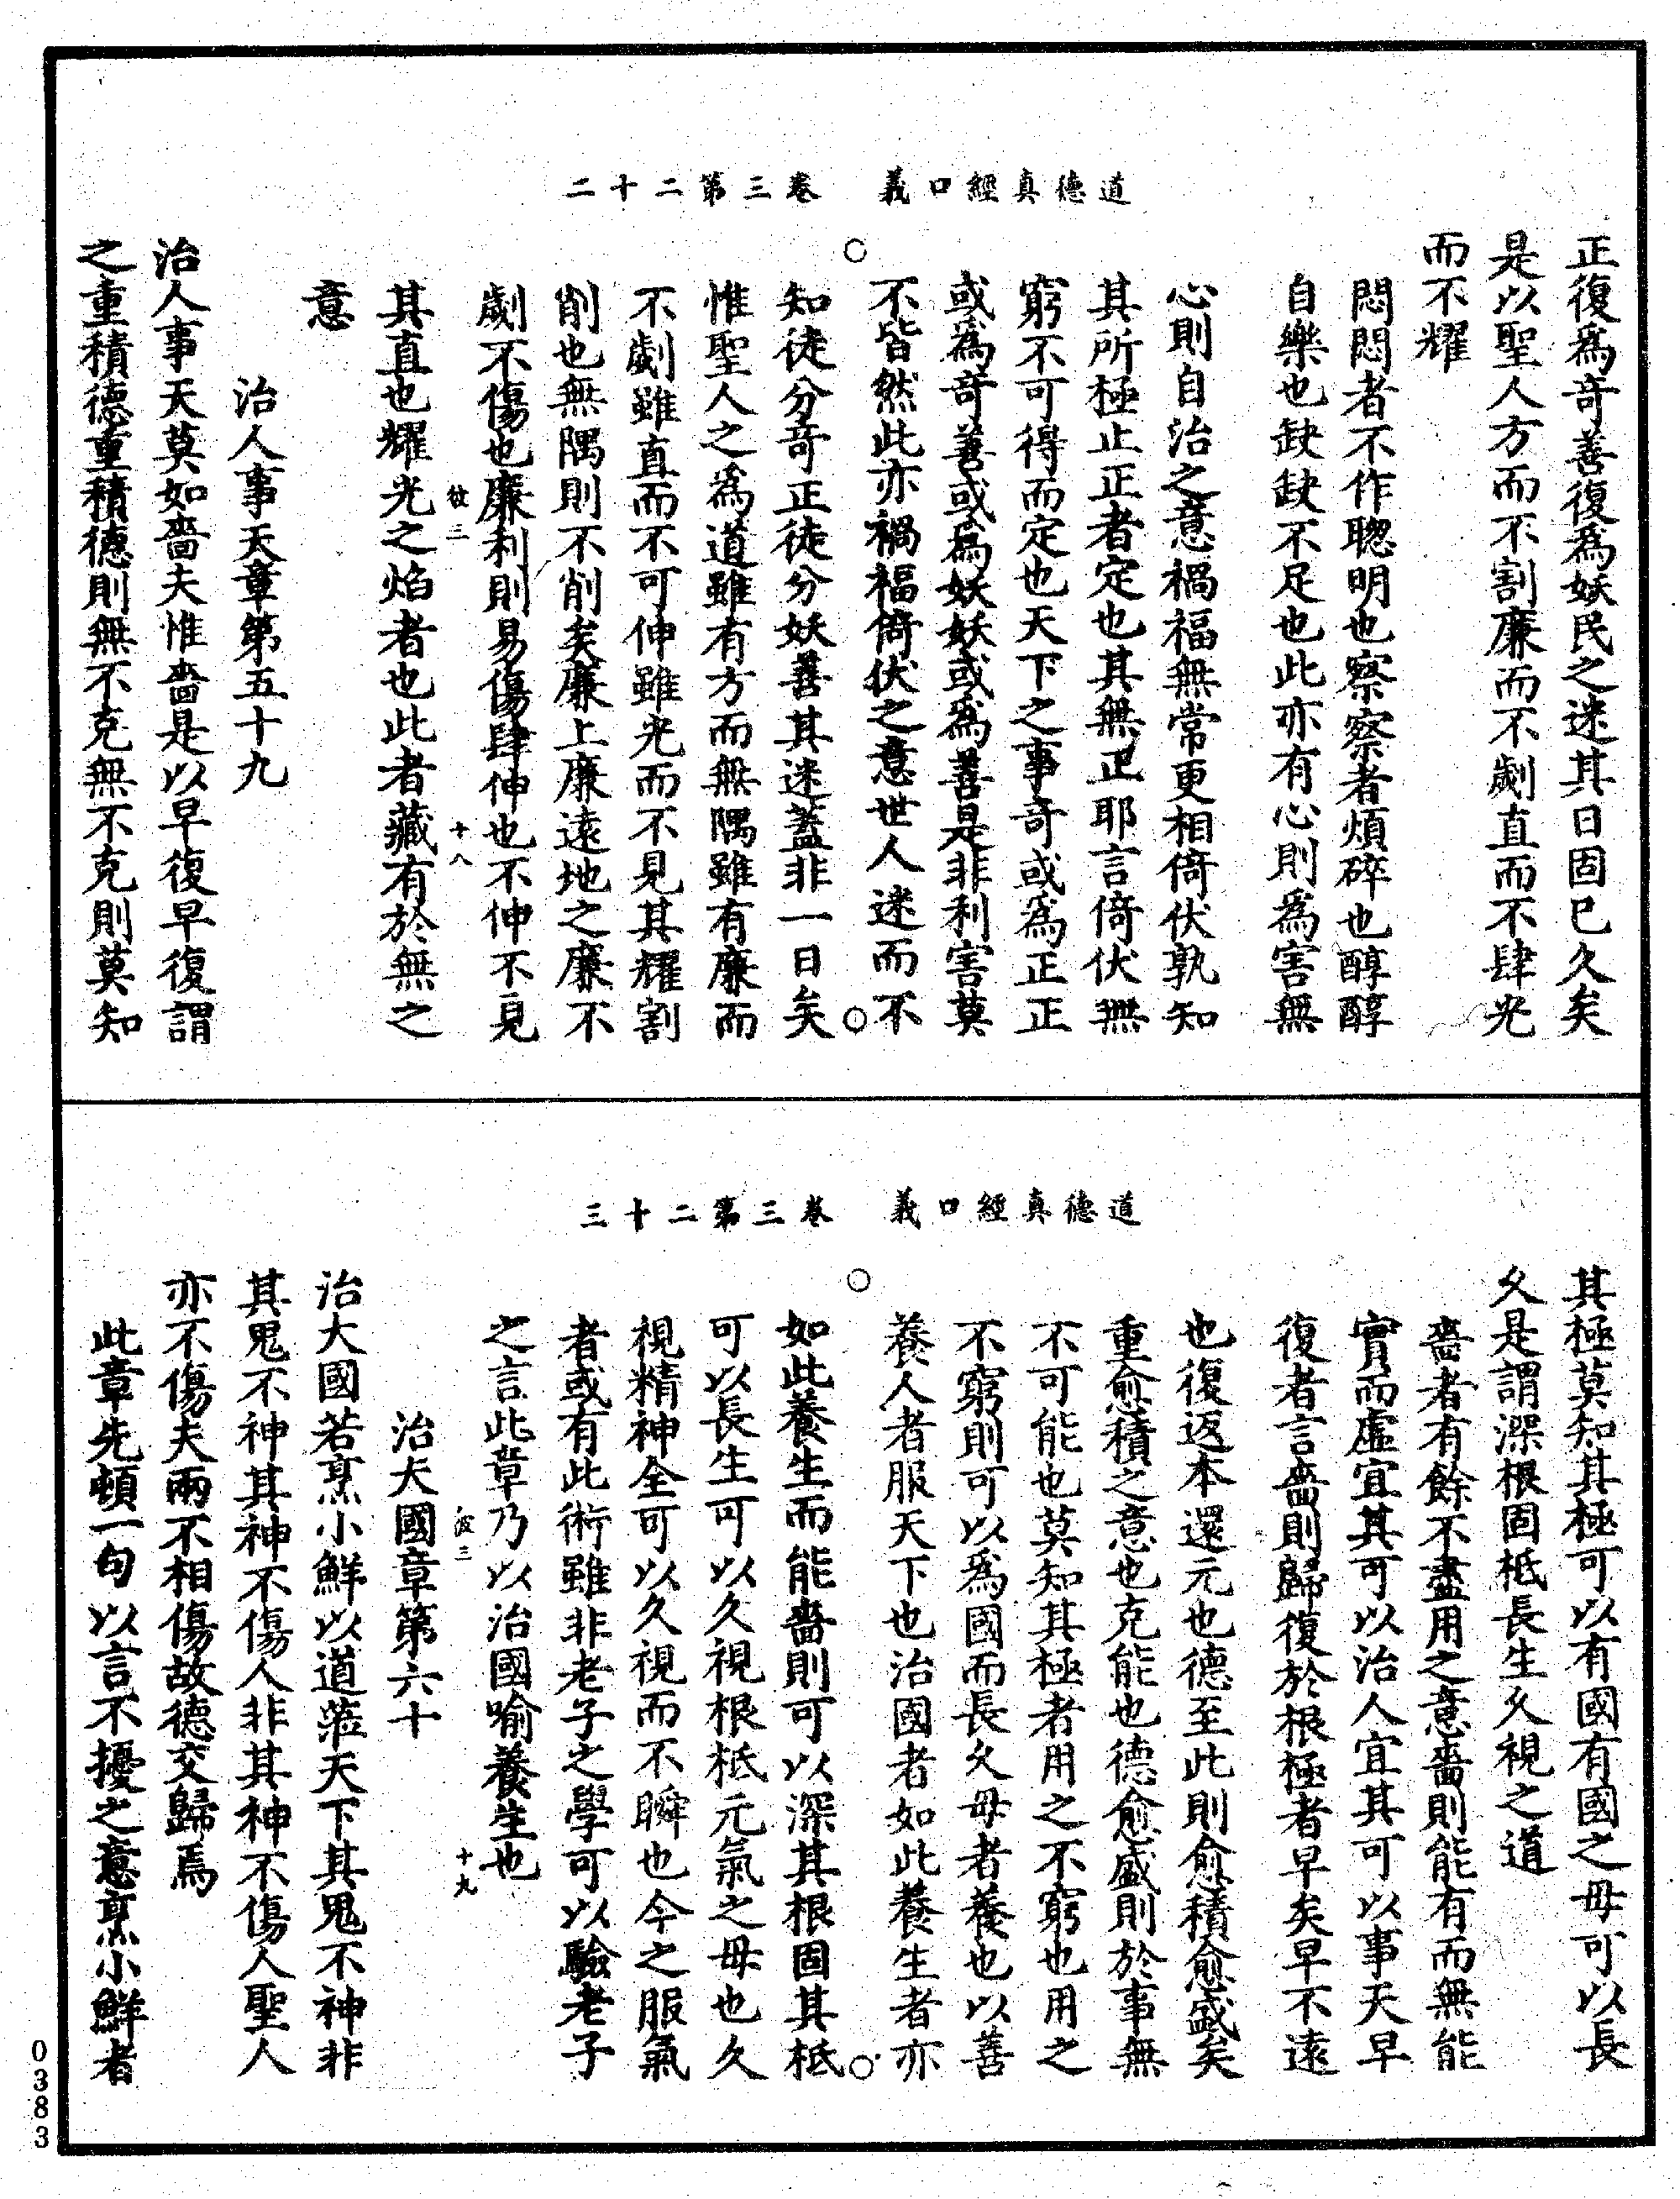 道德真經口義　卷三第二十二
正復爲奇善復爲妖民之迷其日固已久矣
是以聖人方而不割廉而不劌直而不肆光
而不耀
悶悶者不作聰明也察察者煩碎也醇醇
自樂也缺缺不足也此亦有心則爲害無
心則自治之意禍福無常更相倚伏孰知
其所極止正者定也其無正耶言倚伏無
窮不可得而定也天下之事奇或爲正正
或爲奇善或爲妖妖或爲善是非利害莫
不皆然此亦禍福倚伏之意世人迷而不
知徒分奇正徒分妖善其迷蓋非一日矣
惟聖人之爲道雖有方而無隅雖有廉而
不劌雖直而不可伸雖光而不見其耀割
削也無隅則不削矣廉上廉遠地之廉不
劌不傷也廉利則易傷肆伸也不伸不見
其直也耀光之焰者也此者藏有於無之
意
治人事天章第五十九
治人事天莫如嗇夫惟嗇是以早復早復謂
之重積德重積德則無不克無不克則莫知
三
十八
道德真經口義　卷三第二十三
其極莫知其極可以有國有國之母可以長
久是謂深根固柢長生久視之道
嗇者有餘不盡用之意嗇則能有而無能
實而虛宜其可以治人宜其可以事天早
復者言嗇則歸復於根極者早矣早不遠
也復返本還元也德至此則愈積愈盛矣
重愈積之意也克能也德愈盛則於事無
不可能也莫知其極者用之不窮也用之
不窮則可以爲國而長久母者養也以善
養人者服天下也治國者如此養生者亦
如此養生而能嗇則可以深其根固其柢
可以長生可以久視根柢元氣之母也久
視精神全可以久視而不瞬也今之服氣
者或有此術雖非老子之學可以驗老子
之言此章乃以治國喻養生也
治大國章第六十
治大國若烹小鮮以道莅天下其鬼不神非
其鬼不神其神不傷人非其神不傷人聖人
亦不傷夫兩不相傷故德交歸焉
此章先頓一句以言不擾之意烹小鮮者
三
十九
0383